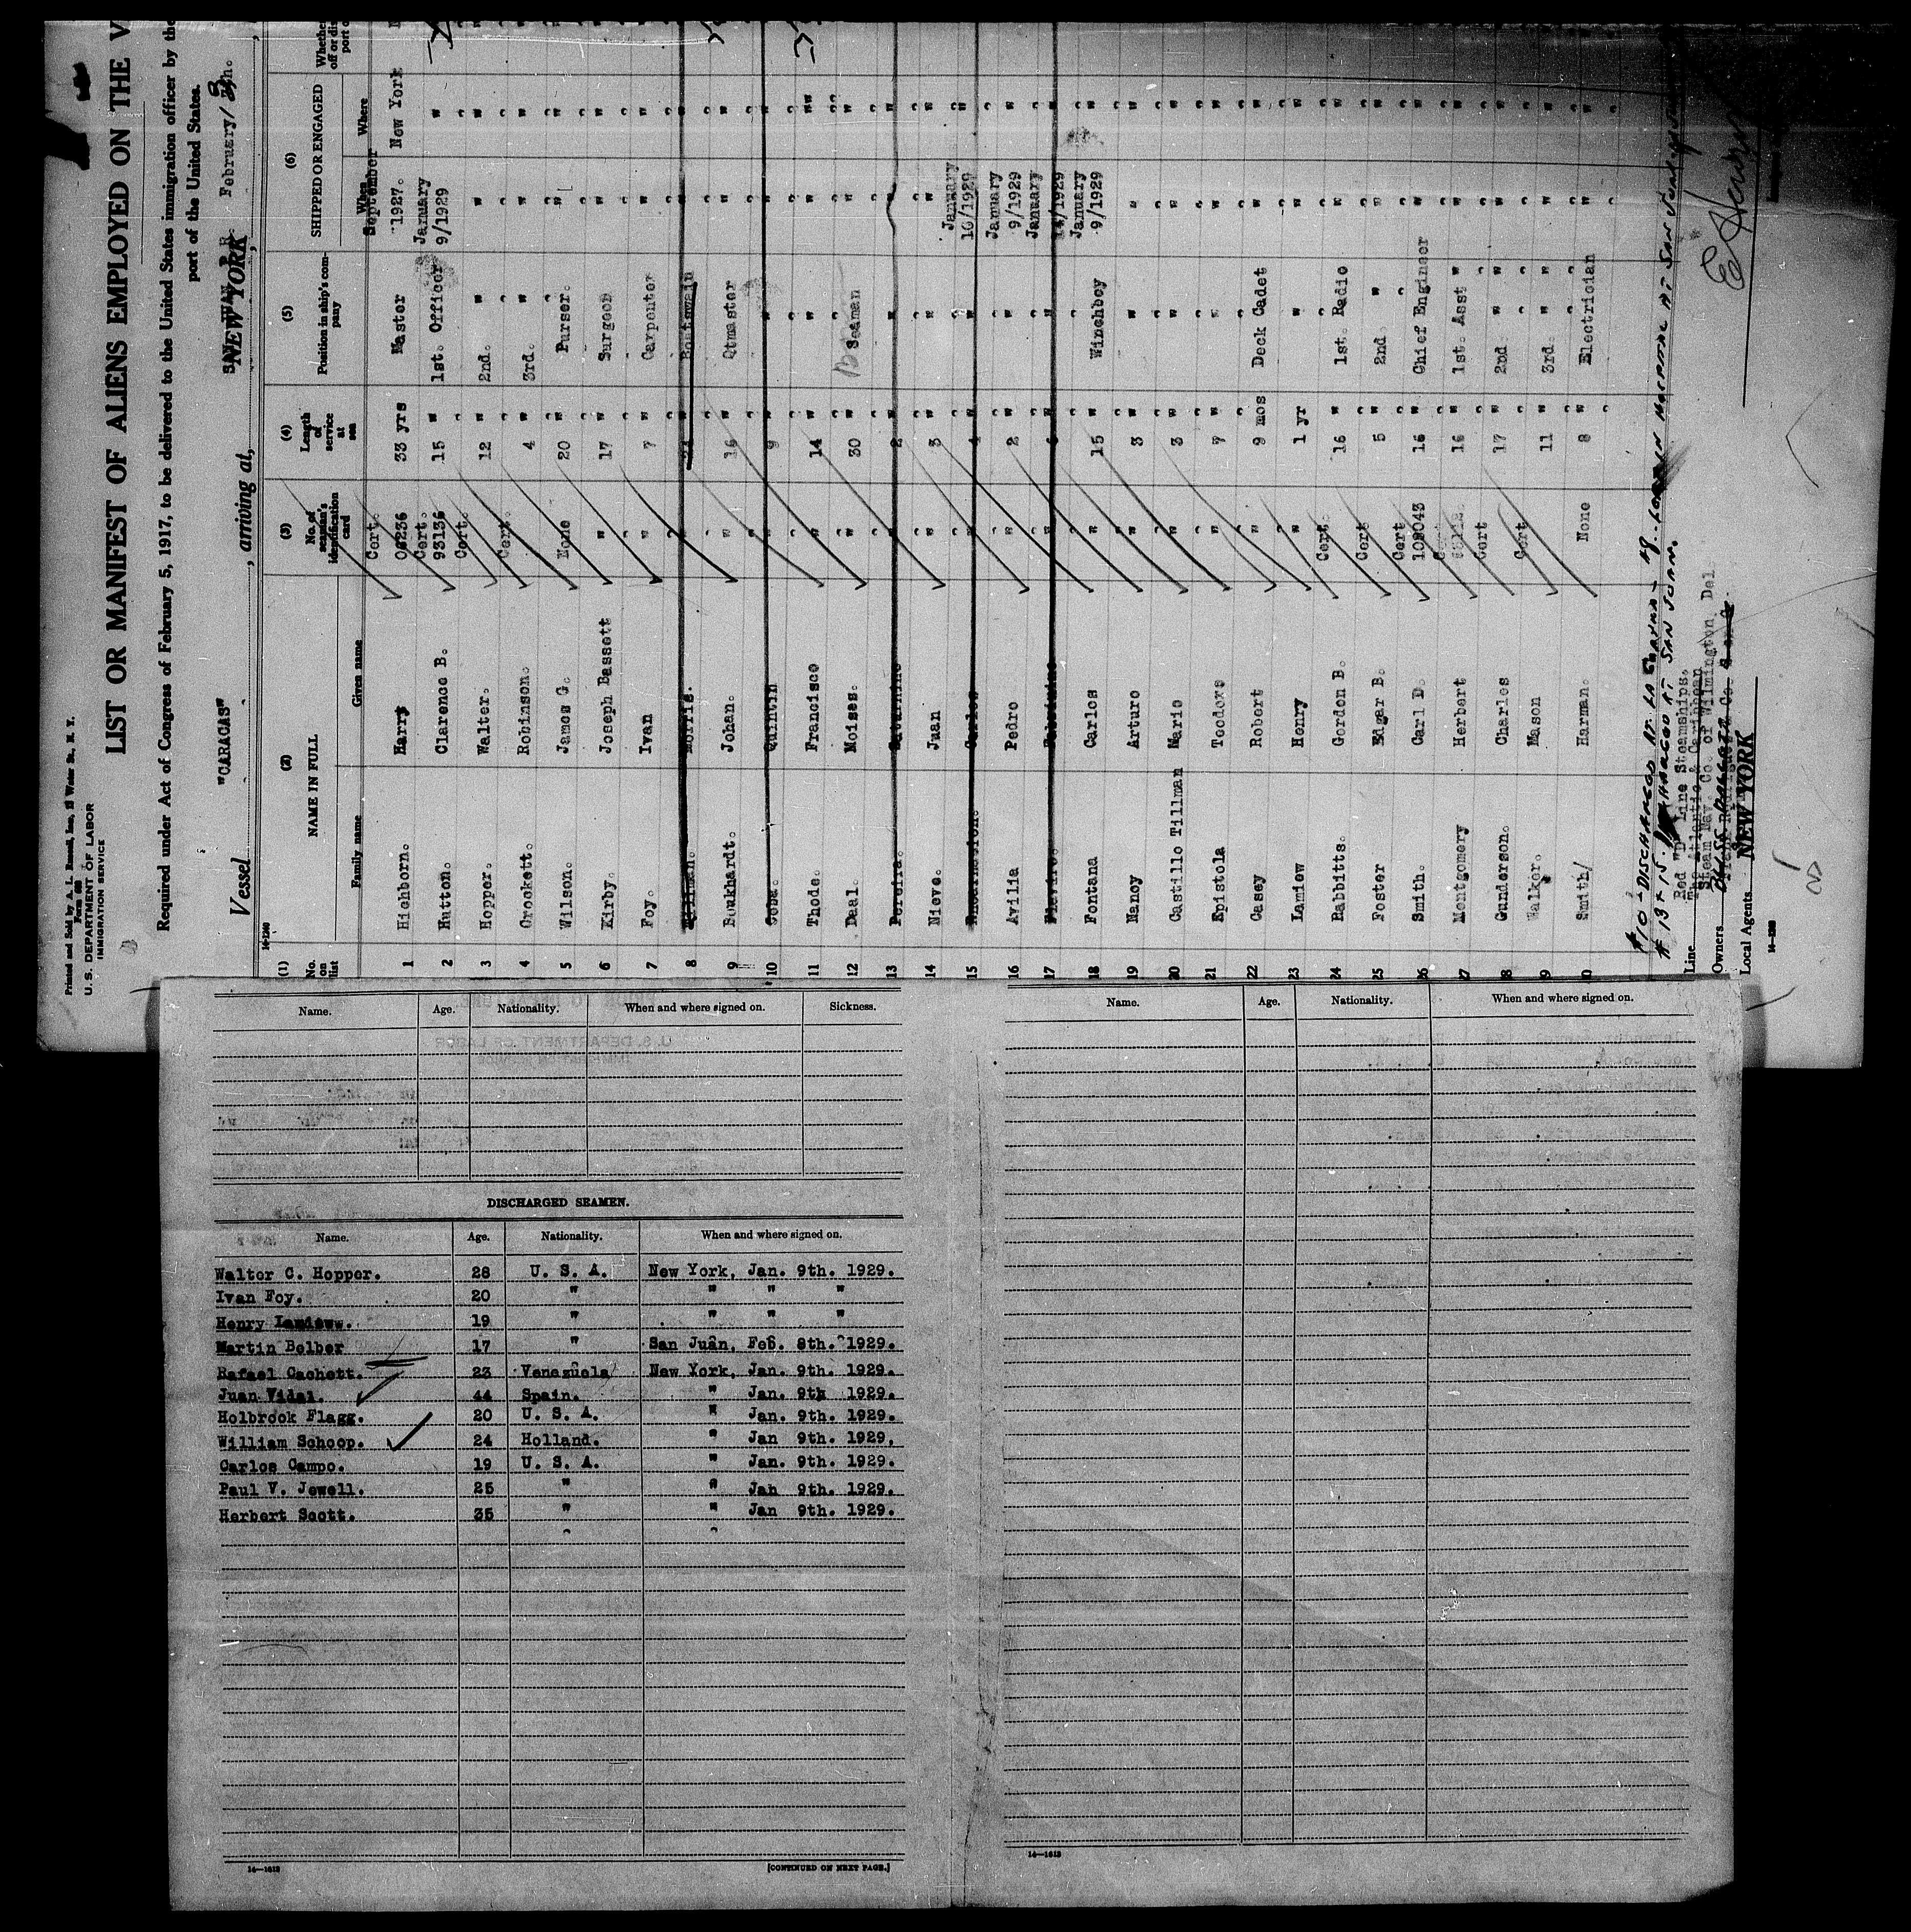 Printed and Sold by A. L. Russell, Inc., 12 Water St., N. Y.
Form 689
U. S. DEPARTMENT OF LABOR
IMMIGRATION SERVICE
LIST OR MANIFEST OF ALIENS EMPLOYED ON THE V
Required under Act of Congress of February 5, 1917, to be delivered to the United States immigration officer by the
port of the United States.
Vessel "CARACAS", arriving at, NEW YORK, February/
14-1240
(1) (2) (3) (4) (5) (6)
No. on list NAME IN FULL No. of seaman's identification card Length of service at sea Position in ship's company SHIPPED OR ENGAGED Whether
Family name Given name When Where
1 Highborn. Harry Cert. 33 yrs Master September 1927. New York
2 Hutton. Clarence B. Cert. 93136 15 " 1st. Officer January 9/1929 "
3 Hopper. Walter. Cert. 12 " 2nd. " " "
4 Crockett. Robinson. Cert. 4 " 3rd. " " "
5 Wilson. James G. None 20 " Purser. " "
6 Kirby. Joseph Bassett " 17 " Surgeon " "
7 Foy. Ivan " 7 " Carpenter " "
8 Morris. " " Boatswain " "
9 Boukhardt. Johan. " 16 " Qtmaster " "
10 Goba. Quintin " 9 " " " "
11 Thode. Francisco " 14 " " " "
12 Deal. Moises. " 30 " Seaman " "
13 Pereira. Saturnino " 2 " " " "
14 Nieve. Juan " 3 " " " "
15 Carlos " 4 " " January 10/1929 "
16 Avilia Pedro " 2 " " January 9/1929 "
17 " 6 " " January 14/1929 "
18 Fontana Carlos " 15 " Winchboy January 9/1929 "
19 Nancy Arturo " 3 " " "
20 Castillo Tillman Mario " 3 " " " "
21 Epistola Teodoro " 7 " " " "
22 Casey Robert " 9 mos Deck Cadet " "
23 Lamiew Henry " 1 yr " " "
24 Rabbitts. Gordon B. Cert. 16 " 1st. Radio " "
25 Foster Edgar B. Cert 5 " 2nd. " " "
26 Smith. Carl D. Cert 109043 16 " Chief Engineer " "
27 Montgomery Herbert 16 " 1st. Asst " " "
28 Gunderson. Charles Cert 17 " 2nd " " " "
29 Walker. Mason Cert 11 " 3rd. " " "
30 Smith/ Harman. None 8 " Electrician " "
#10 - DISCHARGED AT LA GUAYRA -
# 13 - 15. DISCHARGED AT SAN JUAN.
Line Red "D" Line Steamships.
The Atlantic & Caribbean
Steam Nav. Co. of Wilmington Del
Owners
Local Agents NEW YORK
14-1240
Name. Age. Nationality. When and where signed on. Sickness.
DISCHARGED SEAMEN.
Name. Age. Nationality. When and where signed on.
Walter C. Hopper. 28 U. S. A. New York, Jan. 9th. 1929.
Ivan Foy. 20 " " " "
Henry 19 " " " "
Martin Belber 17 " San Juan, Feb. 8th. 1929.
Rafael Cachett. 23 Venezuela New York, Jan. 9th. 1929.
Juan Vidal. 44 Spain. " Jan. 9th 1929.
Holbrook Flagg. 20 U. S. A. " Jan. 9th. 1929.
William Schoop. 24 Holland. " Jan 9th. 1929,
Carlos Campo. 19 U. S. A. " Jan. 9th. 1929.
Paul V. Jewell. 25 " " Jan 9th. 1929.
Herbert Scott. 35 " " Jan 9th. 1929.
14-1613
[CONTINUED ON NEXT PAGE.]
Name. Age. Nationality. When and where signed on.
14-1613